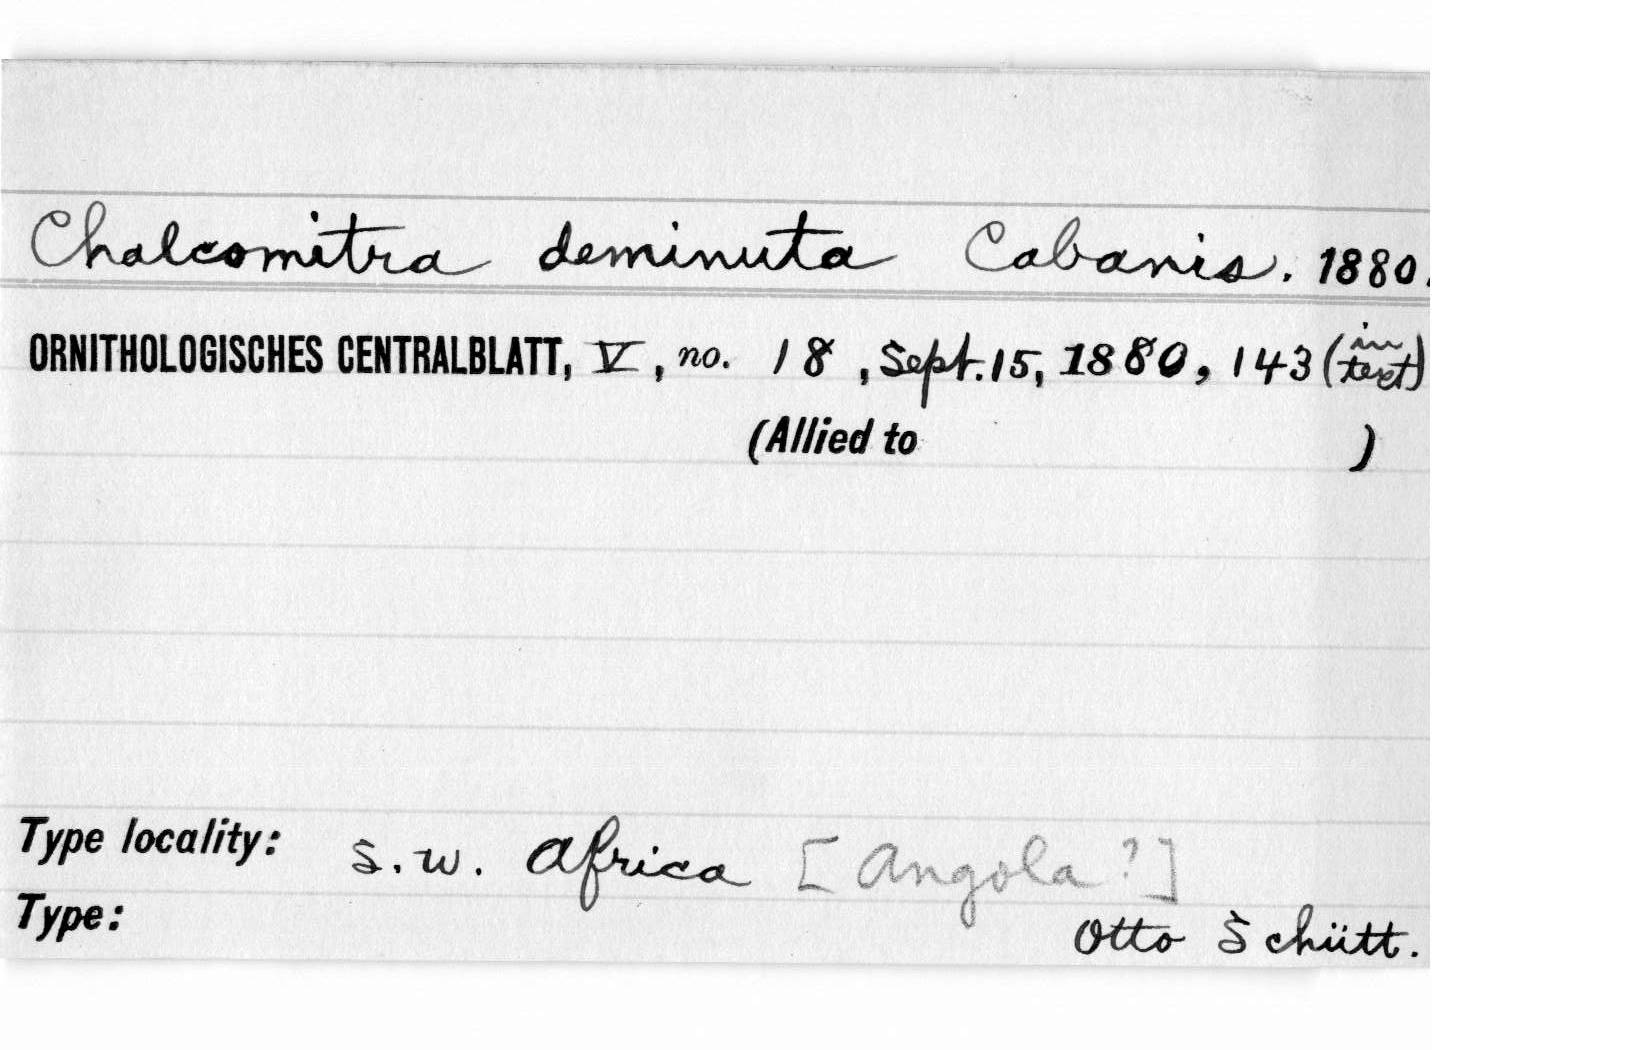 Chalcomitra deminuta Cabanis. 1880.
ORNITHOLOGISCHES CENTRALBLATT, V, no. 18, Sept. 15, 1880, 143 (in text)
(Allied to )
Type locality: S. W. Africa [Angola?]
Type: Otto Schütt.